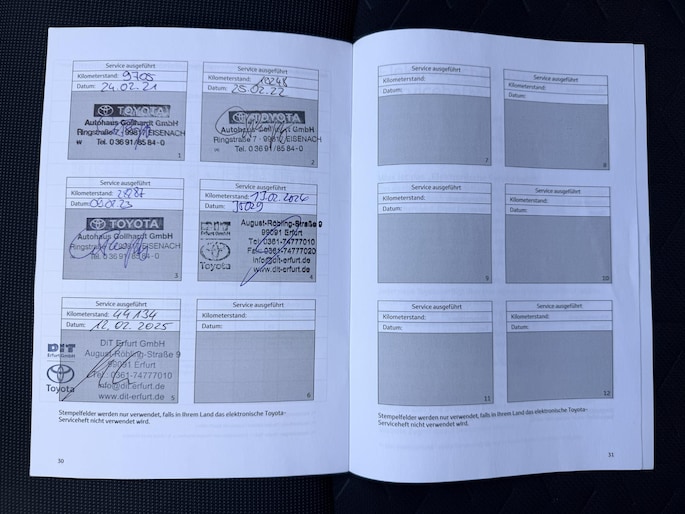 Service ausgeführt
Kilometerstand: 9705
Datum: 24.02.21
TOYOTA
Autohaus Gollhardt GmbH
Ringstraße 7 · 99817 EISENACH
Tel. 0 36 91/85 84-0
1
Service ausgeführt
Kilometerstand:
Datum: 25.02.22
TOYOTA
Autohaus Gollhardt GmbH
Ringstraße 7 · 99817 EISENACH
Tel. 0 36 91/85 84-0
2
Service ausgeführt
Kilometerstand:
Datum:
TOYOTA
Autohaus Gollhardt GmbH
Ringstraße 7 · 99817 EISENACH
Tel. 0 36 91/85 84-0
3
Service ausgeführt
Kilometerstand: 13.02.2024
Datum: 35029
August-Röbling-Straße 9
99091 Erfurt
Tel. 0361-74777010
Fax: 0361-74777020
info@dit-erfurt.de
www.dit-erfurt.de
Toyota
4
Service ausgeführt
Kilometerstand: 44134
Datum: 12.02.2025
DiT
DiT Erfurt GmbH
August-Röbling-Straße 9
99091 Erfurt
Tel.: 0361-74777010
info@dit-erfurt.de
www.dit-erfurt.de
Toyota
5
Service ausgeführt
Kilometerstand:
Datum:
6
Stempelfelder werden nur verwendet, falls in Ihrem Land das elektronische Toyota-
Serviceheft nicht verwendet wird.
30
Service ausgeführt
Kilometerstand:
Datum:
7
Service ausgeführt
Kilometerstand:
Datum:
8
Service ausgeführt
Kilometerstand:
Datum:
9
Service ausgeführt
Kilometerstand:
Datum:
10
Service ausgeführt
Kilometerstand:
Datum:
11
Service ausgeführt
Kilometerstand:
Datum:
12
Stempelfelder werden nur verwendet, falls in Ihrem Land das elektronische Toyota-
Serviceheft nicht verwendet wird.
31